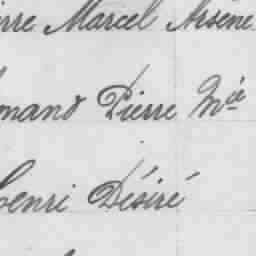 erre Marcel Arsène
mand Pierre Mie
Henri Désiré